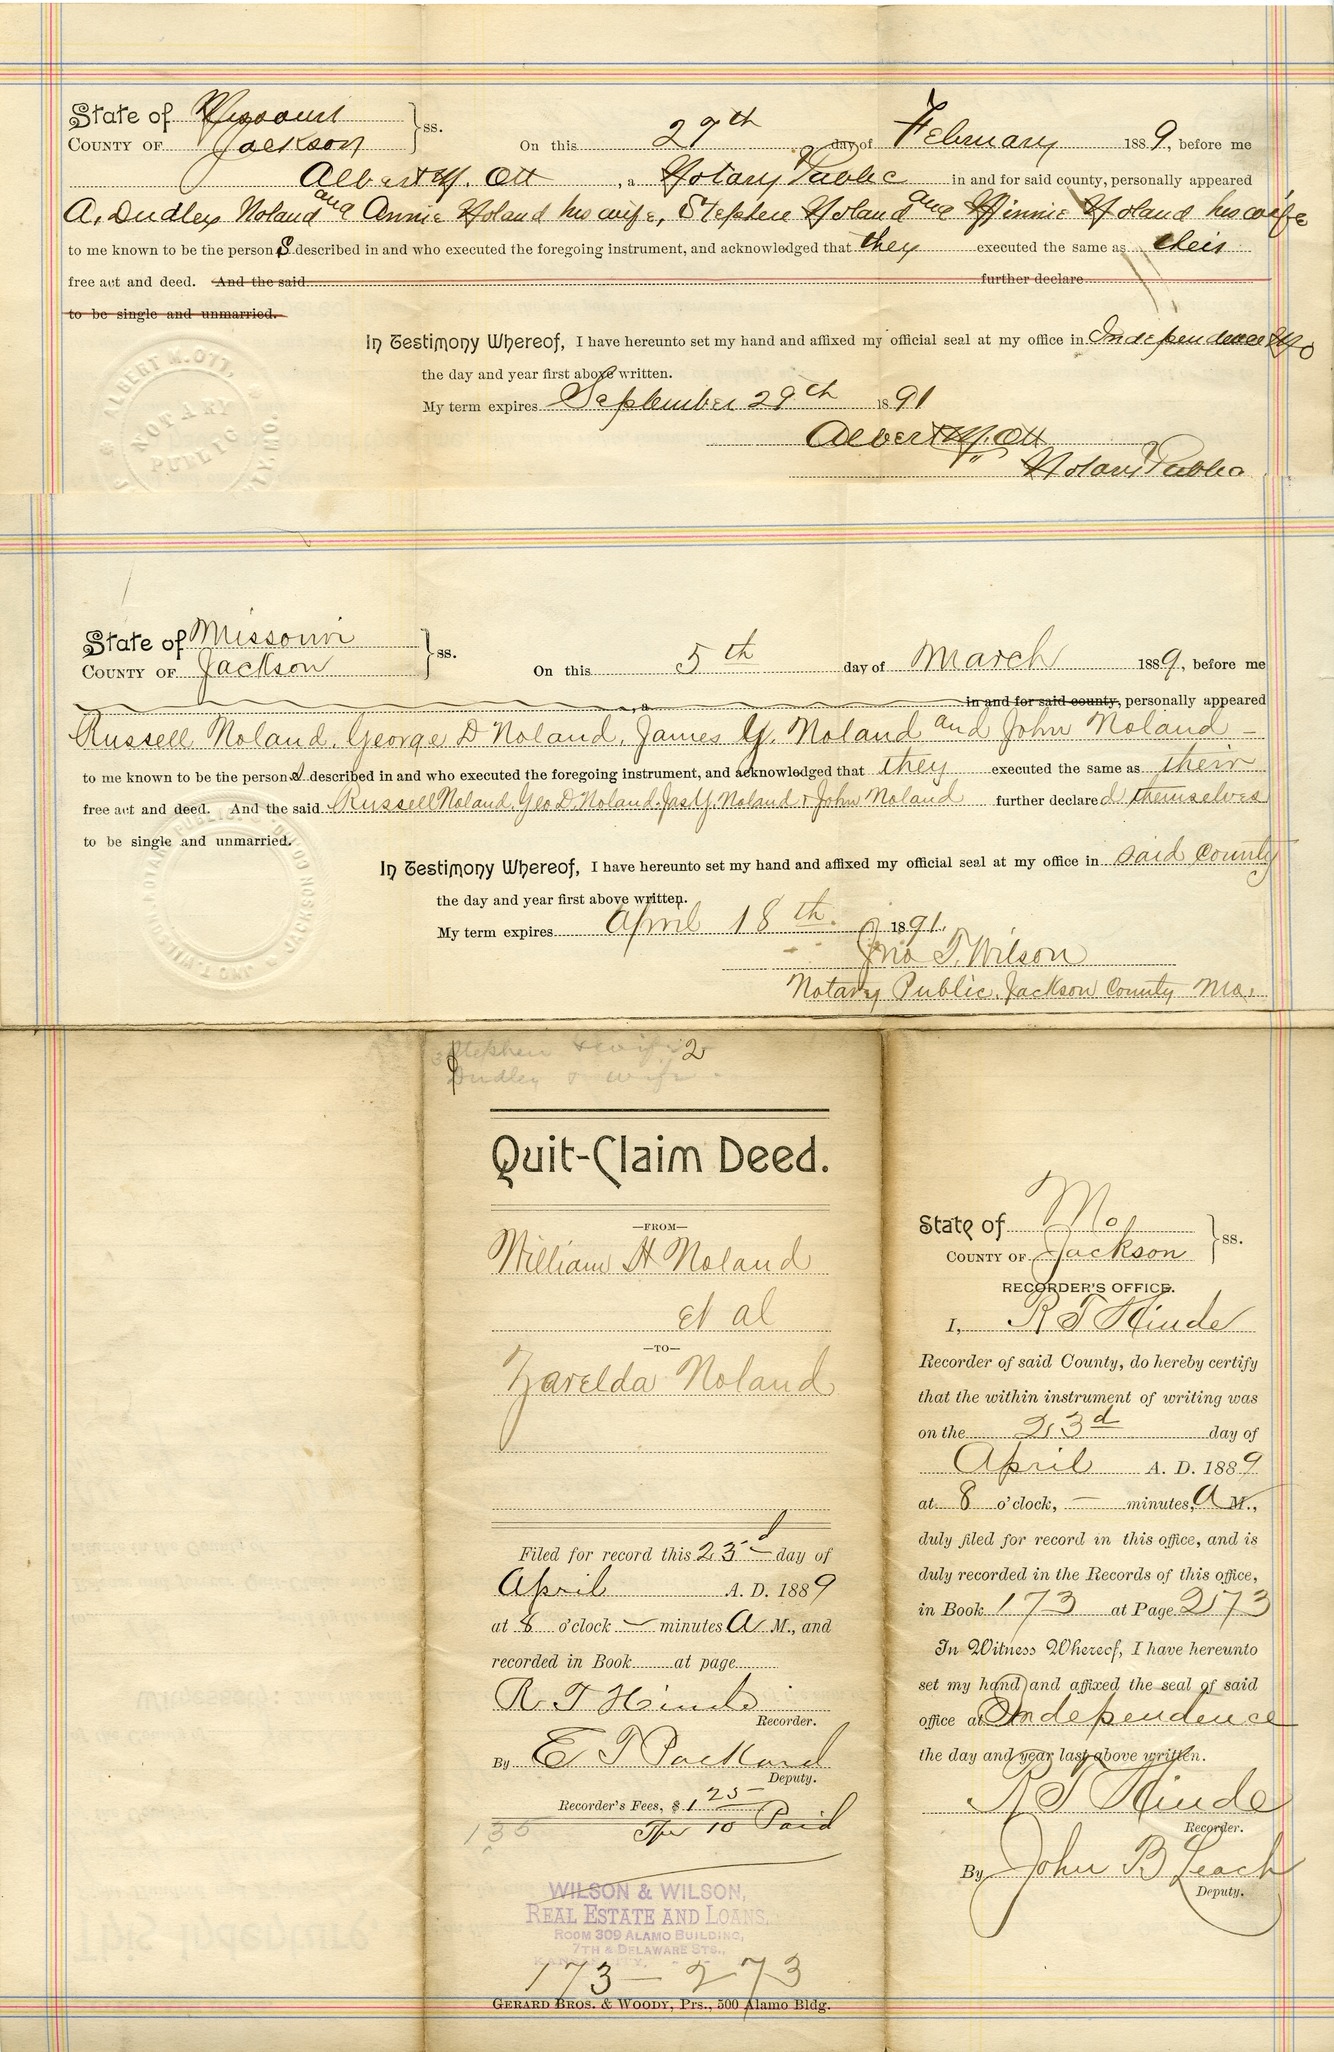 State of Missouri
County of Jackson } ss.
On this 27th day of February 1889, before me
Albert M. Ott, a Notary Public in and for said county, personally appeared
A. Dudley Noland and Annie Noland his wife, Stephen Noland and Minnie Noland his wife
to me known to be the persons described in and who executed the foregoing instrument, and acknowledged that they executed the same as their
free act and deed. And the said further declare
to be single and unmarried.
In Testimony Whereof, I have hereunto set my hand and affixed my official seal at my office in Independence Mo
the day and year first above written.
My term expires September 29th 1891
Albert M. Ott
Notary Public
ALBERT M. OTT,
NOTARY
PUBLIC
State of Missouri
County of Jackson } ss.
On this 5th day of March 1889, before me
, a in and for said county, personally appeared
Russell Noland, George D Noland, James Y. Noland and John Noland –
to me known to be the persons described in and who executed the foregoing instrument, and acknowledged that they executed the same as their
free act and deed. And the said Russell Noland, Geo D. Noland, Jas Y. Noland & John Noland further declared themselves
to be single and unmarried.
In Testimony Whereof, I have hereunto set my hand and affixed my official seal at my office in said County
the day and year first above written.
My term expires April 18th 1891.
Jno T. Wilson
Notary Public, Jackson County Mo.
JNO T. WILSON NOTARY PUBLIC JACKSON CO. MO.
Stephen & wife 2
Dudley & wife
Quit-Claim Deed.
—FROM—
William H Noland
et al
—TO—
Zarelda Noland
Filed for record this 23d day of
April A. D. 1889
at 8 o'clock – minutes A M., and
recorded in Book at page
R T Hinde
Recorder.
By E T Packard
Deputy.
Recorder's Fees, $1 25
135 Tfr 10 Paid
WILSON & WILSON,
REAL ESTATE AND LOANS,
ROOM 309 ALAMO BUILDING,
7TH & DELAWARE STS.,
KANSAS CITY,
173–273
Gerard Bros. & Woody, Prs., 500 Alamo Bldg.
State of Mo
County of Jackson } ss.
RECORDER'S OFFICE.
I, R T Hinde
Recorder of said County, do hereby certify
that the within instrument of writing was
on the 23d day of
April A. D. 1889
at 8 o'clock, – minutes, A M.,
duly filed for record in this office, and is
duly recorded in the Records of this office,
in Book 173 at Page 273
In Witness Whereof, I have hereunto
set my hand and affixed the seal of said
office at Independence
the day and year last above written.
R T Hinde
Recorder.
By John B Leach
Deputy.